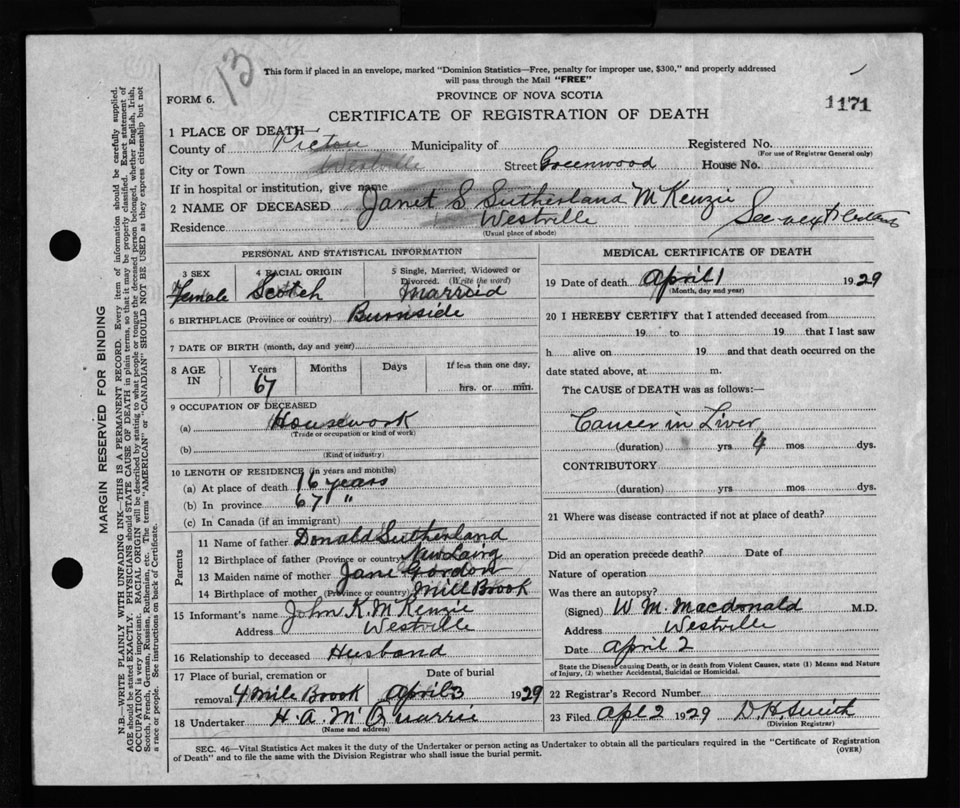 13
This form if placed in an envelope, marked "Dominion Statistics—Free, penalty for improper use, $300," and properly addressed
will pass through the Mail "FREE"
FORM 6.
PROVINCE OF NOVA SCOTIA
1171
CERTIFICATE OF REGISTRATION OF DEATH
1 PLACE OF DEATH—
County of Pictou Municipality of Registered No.
(For use of Registrar General only)
City or Town Westville Street Greenwood House No.
If in hospital or institution, give name
2 NAME OF DECEASED Janet S Sutherland McKenzie
Residence Westville See
(Usual place of abode)
PERSONAL AND STATISTICAL INFORMATION
3 SEX 4 RACIAL ORIGIN 5 Single, Married, Widowed or
Divorced. (Write the word)
Female Scotch Married
6 BIRTHPLACE (Province or country) Burnside
7 DATE OF BIRTH (month, day and year)
8 AGE IN Years Months Days If less than one day,
67 hrs. or min.
9 OCCUPATION OF DECEASED
(a) Housework
(Trade or occupation or kind of work)
(b)
(Kind of industry)
10 LENGTH OF RESIDENCE (in years and months)
(a) At place of death 16 years
(b) In province 67 "
(c) In Canada (if an immigrant)
Parents
11 Name of father Donald Sutherland
12 Birthplace of father (Province or country) New Lairg
13 Maiden name of mother Jane Gordon
14 Birthplace of mother (Province or country) Mill Brook
15 Informant's name John K. McKenzie
Address Westville
16 Relationship to deceased Husband
17 Place of burial, cremation or Date of burial
removal 4 Mile Brook April 3 1929
18 Undertaker H. A. McQuarrie
(Name and address)
MEDICAL CERTIFICATE OF DEATH
19 Date of death April 1 1929
(Month, day and year)
20 I HEREBY CERTIFY that I attended deceased from
19 to 19 that I last saw
h alive on 19 and that death occurred on the
date stated above, at m.
The CAUSE of DEATH was as follows:—
Cancer in Liver
(duration) yrs 9 mos dys.
CONTRIBUTORY
(duration) yrs mos dys.
21 Where was disease contracted if not at place of death?
Did an operation precede death? Date of
Nature of operation
Was there an autopsy?
(Signed) W. M. Macdonald M.D.
Address Westville
Date April 2
State the Disease causing Death, or in death from Violent Causes, state (1) Means and Nature
of Injury, (2) whether Accidental, Suicidal or Homicidal.
22 Registrar's Record Number
23 Filed Apl 2 1929 D. H. Smith
(Division Registrar)
SEC. 46—Vital Statistics Act makes it the duty of the Undertaker or person acting as Undertaker to obtain all the particulars required in the "Certificate of Registration
of Death" and to file the same with the Division Registrar who shall issue the burial permit.
(OVER)
MARGIN RESERVED FOR BINDING
N.B.—WRITE PLAINLY WITH UNFADING INK—THIS IS A PERMANENT RECORD. Every item of information should be carefully supplied.
AGE should be stated EXACTLY. PHYSICIANS should STATE CAUSE OF DEATH in plain terms, so that it may be properly classified. Exact statement of
OCCUPATION is very important. RACIAL ORIGIN will be described by stating to what people or tongue the deceased person belonged, whether English, Irish,
Scotch, French, German, Russian, Ruthenian, etc. The terms "AMERICAN" or "CANADIAN" SHOULD NOT BE USED as they express citizenship but not
a race or people. See instructions on back of Certificate.